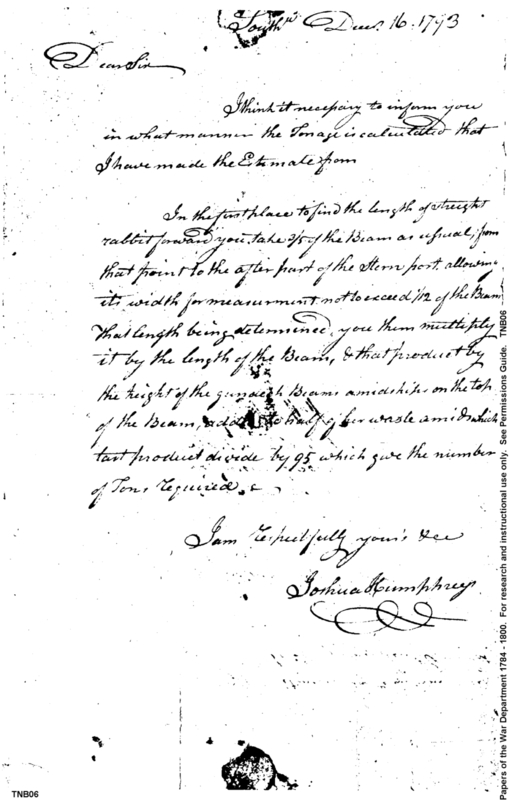 South<sup>k</sup> Decr. 16. 1793
Dear Sir
I think it necessary to inform you
in what manner the Tonage is calculated that
I have made the Estemate from
In the first place to find the length of streight
rabbit forward you take 3/5 of the Beam as usual, from
that point to the after part of the Stern post, allowing
its width for measurment not to exceed 1/12 of the Beam
That length being determined, you them multiply
it by the length of the Beam, & that product by
the height of the gundeck Beams amidships on the top
of the Beam, added to half of her waste amids which
last product divide by 95 which give the number
of Tons required
I am respectfully your's &cc
Joshua Humphreys
TNB06
Papers of the War Department 1784 - 1800. For research and instructional use only. See Permissions Guide. TNB06